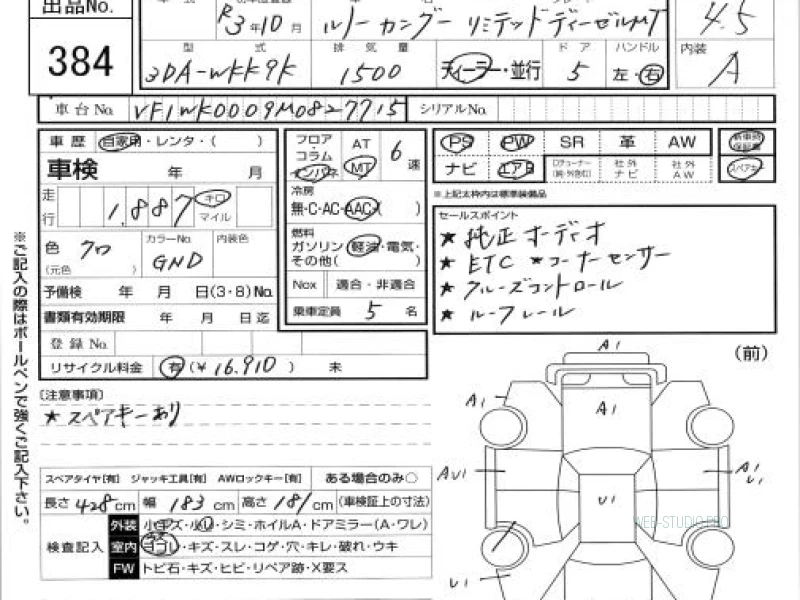 出品No.
384
R3年10月
ルノー カングー リミテッド ディーゼルMT
4.5
型 式
排 気 量
ドア
ハンドル
内装
3DA-WKK9K
1500
ディーラー・並行
5
左・右
A
車台No.
VF1WK0009M0827715
シリアルNo.
車歴
自家用・レンタ・( )
車検
年 月
走行
1,887
キロ
マイル
色
クロ
(元色 )
カラーNo.
GND
内装色
予備検 年 月 日(3・8)No.
書類有効期限 年 月 日迄
登録No.
リサイクル料金
有(¥16,910) 未
フロア・コラム
インパネ
AT
MT
6速
冷房
無・C・AC・AAC( )
燃料
ガソリン・軽油・電気・
その他( )
Nox
適合・非適合
乗車定員
5名
PS
PW
SR
革
AW
新車時保証書
ナビ
エアB
社外ナビ
社外AW
スペアキー
※上記太枠内は標準装備品
セールスポイント
★ 純正オーディオ
★ ETC ★コーナーセンサー
★ クルーズコントロール
★ ルーフレール
※ご記入の際はボールペンで強くご記入下さい。
〔注意事項〕
★ スペアキーあり
スペアタイヤ[有] ジャッキ工具[有] AWロックキー[有] ある場合のみ○
長さ 428cm 幅 183cm 高さ 181cm (車検証上の寸法)
検査記入
外装 小キズ・小凹・シミ・ホイルA・ドアミラー(A・ワレ)
室内 ヨゴレ・キズ・スレ・コゲ・穴・キレ・破れ・ウキ
FW トビ石・キズ・ヒビ・リペア跡・X要ス
(前)
A1
A1
A1
AU1
U1
A1
U1
U1
WEB-STUDIO.PRO